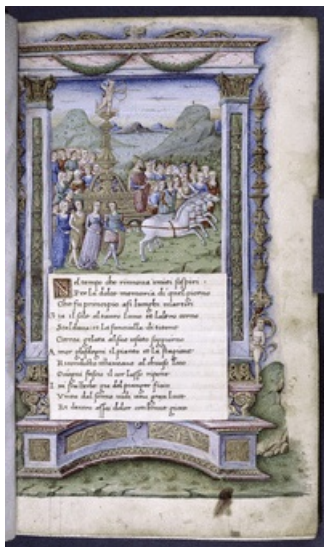 Nel tempo che rinnova i miei sospiri
Per la dolce memoria di quel giorno
Che fu principio a si lunghi martiri
Gia il sole al tauro luno et laltro corno
Scaldava et la fanciulla di titone
Correa gelata al suo usato soggiorno
Amor gli sdegni il pianto et la stagione
Ricondotto maveano al chiuso loco
Ovogni fascio il cor lasso ripone
I vi fra lerbe gia del pianger fioco
Vinto dal somno vidi una gran luce
Et dentro assai dolor con breve gioco